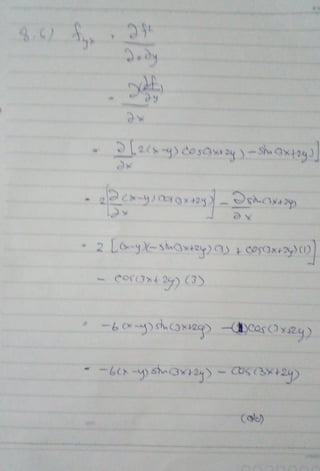 8.6) f_yx = ∂f²
∂x∂y
= ∂(∂f/∂y)
∂x
= ∂/∂x [2(x-y) cos(3x+2y) - sin(3x+2y)]
= 2[∂/∂x (x-y) cos(3x+2y)] - ∂ sin(3x+2y)/∂x
= 2 [(x-y)(-sin(3x+2y)(3) + cos(3x+2y)(1)]
- cos(3x+2y) (3)
= -6(x-y) sin(3x+2y) - (1) cos(3x+2y)
= -6(x-y) sin(3x+2y) - cos(3x+2y)